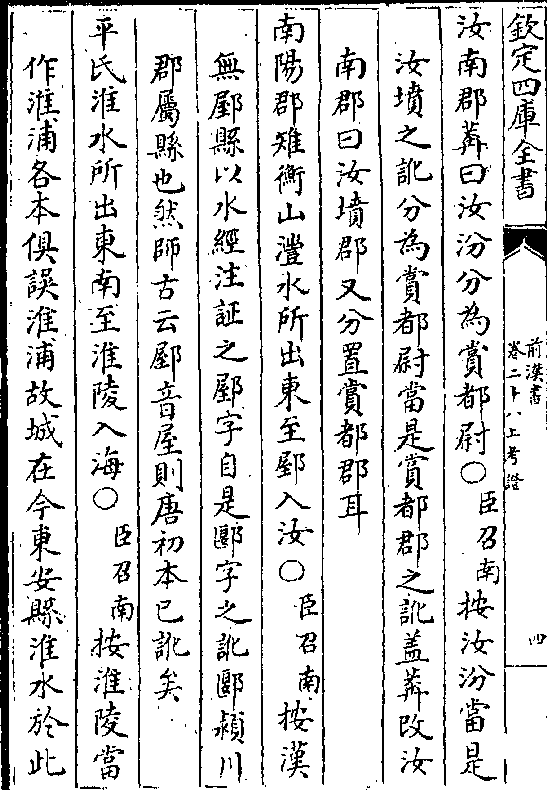 欽定四庫全書
前漢書
卷二十八上考證
四
汝南郡莽曰汝汾分為賞都尉○臣召南按汝汾當是
汝墳之訛分為賞都尉當是賞都郡之訛盖莽改汝
南郡曰汝墳郡又分置賞都郡耳
南陽郡雉衡山澧水所出東至郾入汝○臣召南按漢
無郾縣以水經注証之郾字自是郾字之訛郾潁川
郡屬縣也然師古云郾音屋則唐初本已訛矣
平氏淮水所出東南至淮陵入海○臣召南按淮陵當
作淮浦各本俱誤淮浦故城在今東安縣淮水於此